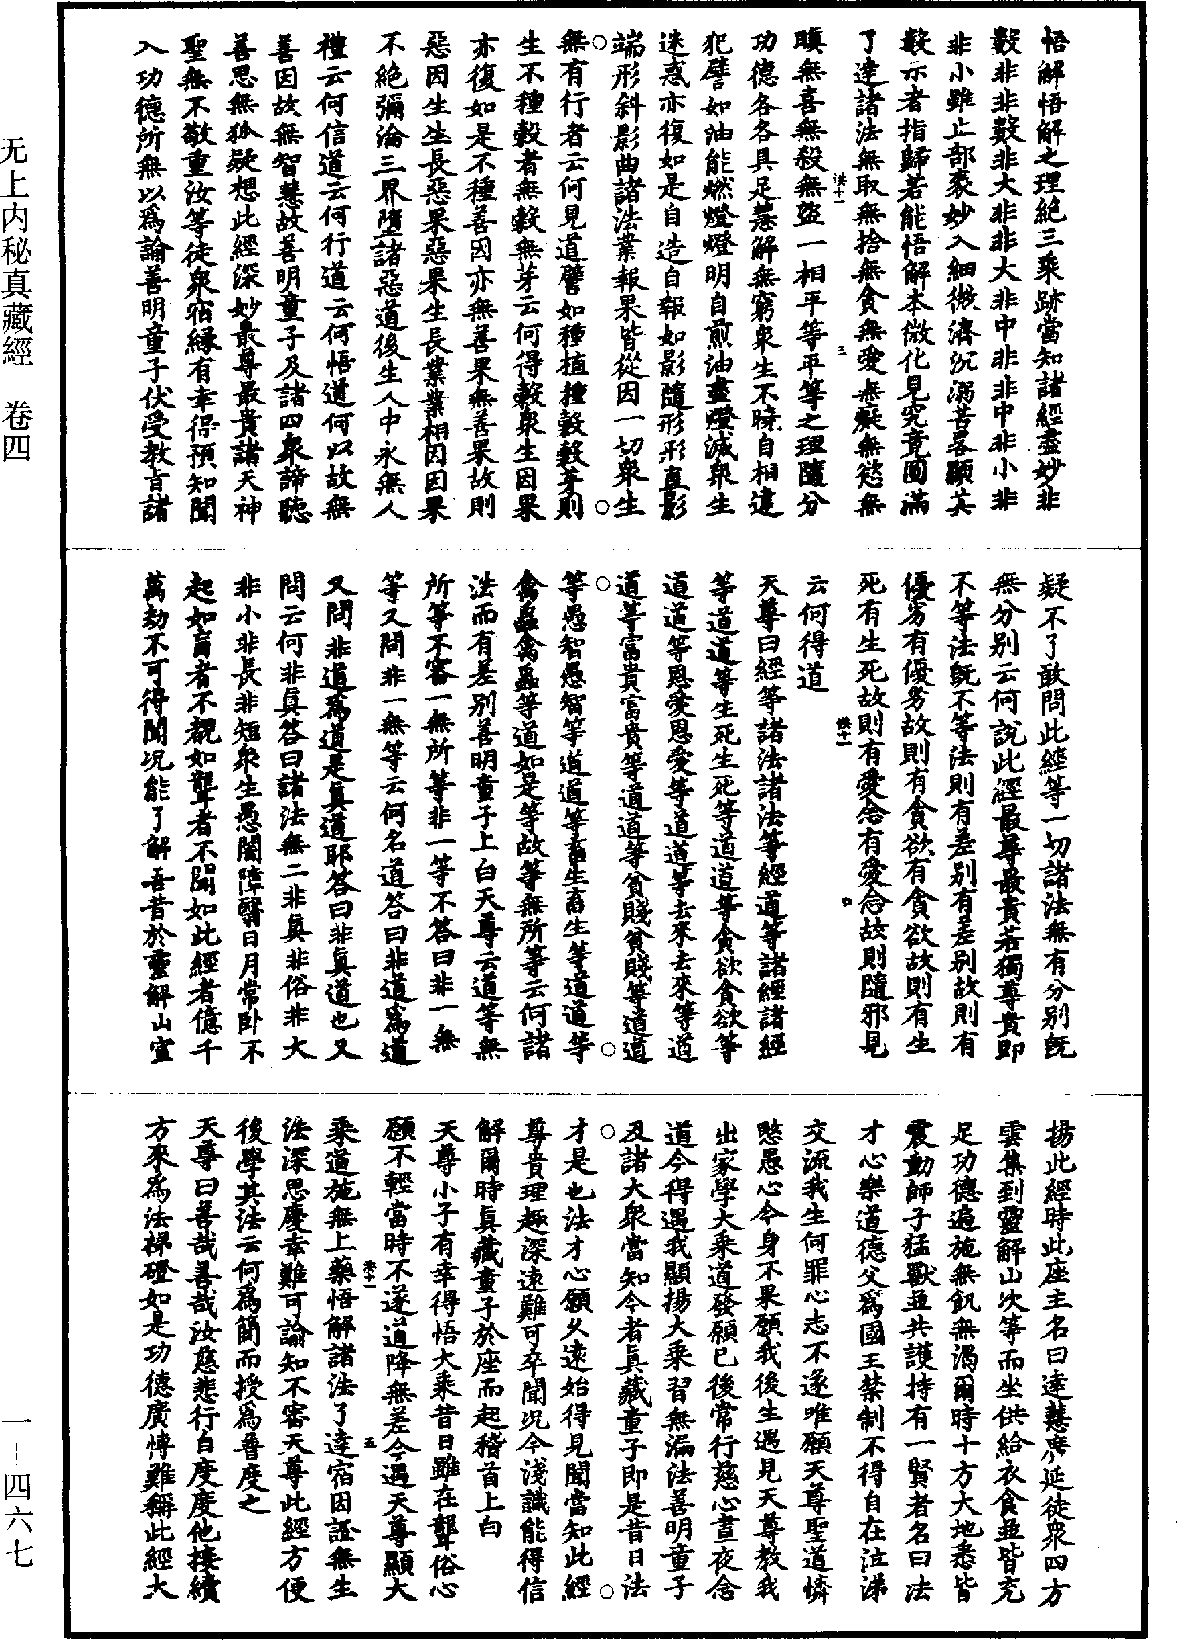 悟解悟解之理絶三乘跡當知諸經盡妙非
數非非數非大非非大非中非非中非小非
非小雖止部袠妙入細微濟沉溺苦畧顯其
數示者指歸若能悟解本微化見究竟圓滿
了達諸法無取無捨無貪無愛無癡無慾無
瞋無喜無殺無盜一相平等平等之理隨分
功德各各具足慧解無窮衆生不曉自相違
犯譬如油能燃燈燈明自煎油盡燈滅衆生
迷惑亦復如是自造自報如影隨形形直影
端形斜影曲諸法業報果皆從因一切衆生
無有行者云何見道譬如種植種穀穀芽則
生不種穀者無穀無芽云何得穀衆生因果
亦復如是不種善因亦無善果無善果故則
惡因生生長惡果惡果生長業業相因因果
不絶彌淪三界墮諸惡道後生人中永無人
禮云何信道云何行道云何悟道何以故無
善因故無智慧故善明童子及諸四衆諦聽
善思無狐疑想此經深妙最尊最貴諸天神
聖無不敬重汝等徒衆宿緣有幸得預知聞
入功德所無以爲論善明童子伏受教言諸
疑不了敢問此經等一切諸法無有分別既
無分別云何說此經最尊最貴若獨尊貴即
不等法既不等法則有差別有差別故則有
優劣有優劣故則有貪欲有貪欲故則有生
死有生死故則有愛念有愛念故則隨邪見
云何得道
天尊曰經等諸法諸法等經道等諸經諸經
等道道等生死生死等道道等貪欲貪欲等
道道等恩愛恩愛等道道等去來去來等道
道等富貴富貴等道道等貧賤貧賤等道道
等愚智愚智等道道等畜生畜生等道道等
禽蟲禽蟲等道如是等故等無所等云何諸
法而有差別善明童子上白天尊云道等無
所等不審一無所等非一等不答曰非一無
等又問非一無等云何名道答曰非道爲道
又問非道爲道是真道耶答曰非真道也又
問云何非真答曰諸法無二非真非俗非大
非小非長非短衆生愚闇障翳日月常卧不
起如盲者不覩如聾者不聞如此經者億千
萬劫不可得聞况能了解吾昔於靈解山宣
揚此經時此座主名曰達慧廣延徒衆四方
雲集到靈解山次等而坐供給衣食並皆充
足功德遍施無飢無渴爾時十方大地悉皆
震動師子猛獸並共護持有一賢者名曰法
才心樂道德父爲國王禁制不得自在泣涕
交流我生何罪心志不遂唯願天尊聖道憐
愍愚心今身不果願我後生遇見天尊教我
出家學大乘道發願已後常行慈心晝夜念
道今得遇我顯揚大乘習無漏法善明童子
及諸大衆當知今者真藏童子即是昔日法
才是也法才心願久遠始得見聞當知此經
尊貴理趣深遠難可卒聞况今淺識能得信
解爾時真藏童子於座而起稽首上白
天尊小子有幸得悟大乘昔日雖在聾俗心
願不輕當時不遂道降無差今遇天尊顯大
乘道施無上藥悟解諸法了達宿因證無生
法深思慶幸難可論知不審天尊此經方便
後學其法云何爲簡而授爲普度之
天尊曰善哉善哉汝慈悲行自度度他接續
方來爲法梯磴如是功德廣博難稱此經大
无上内秘真藏經　卷四
一－四六七